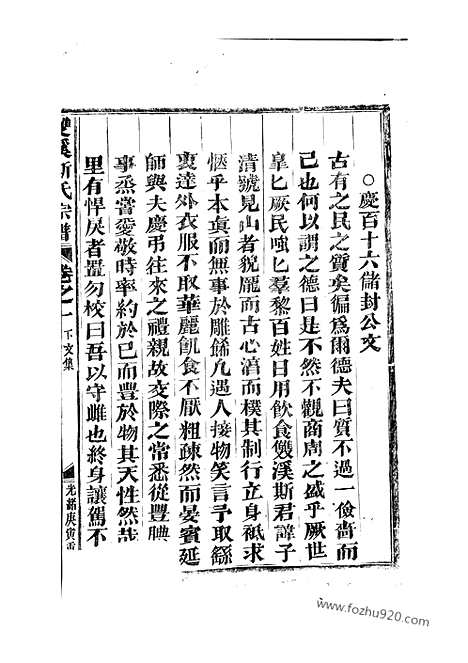 ○慶百十六儲封公文
古有之民之質矣徧爲爾德夫曰質不過一儉嗇而
己也何以謂之德曰是不然不觀商周之盛乎厥世
皐匕厥民嗤匕羣黎百姓日用飲食雙溪斯君諱子
清號見山者貌龎而古心渞而樸其制行立身祗求
悃乎本眞而無事於雕餙凢遇人接物笑言予取繇
衷達外衣服不取華麗飢食不厭粗疎然而晏賓延
師與夫慶弔往來之禮親故交際之常悉從豐腆
事烝嘗愛敬時率約於已而豐於物其天性然哉
里有悍戾者置勿校曰吾以守雌也終身讓駡不
雙溪斯氏宗譜
卷之一
下文集
光緒庚寅重
www.fozhu920.com